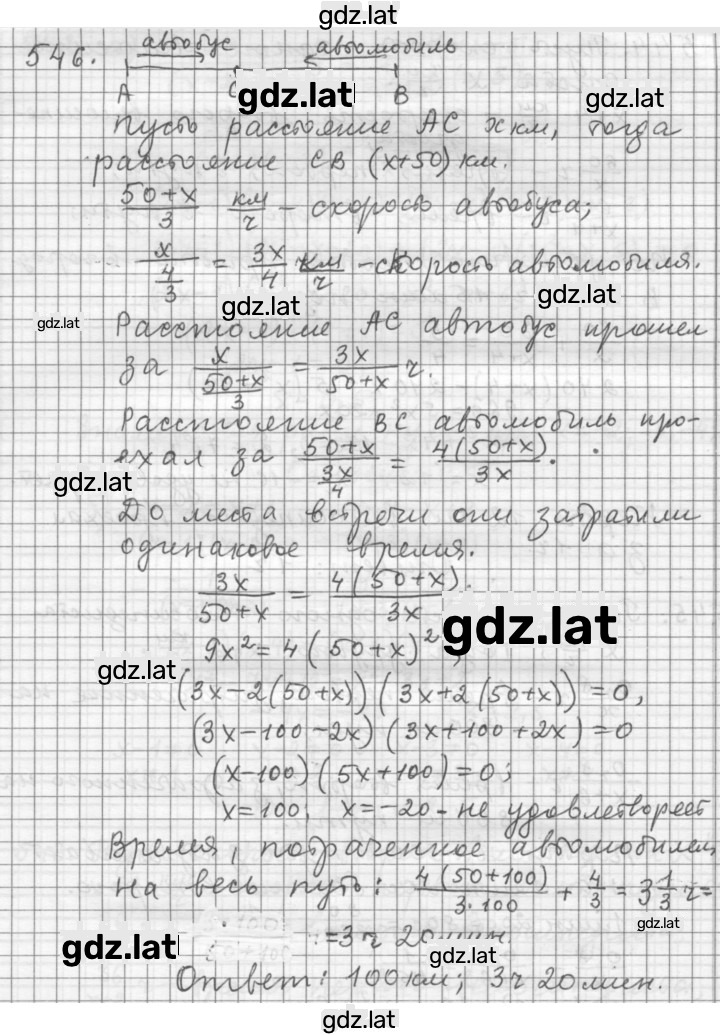 gdz.lat
546. автобус автомобиль
A C B
gdz.lat
gdz.lat
пусть расстояние AC x км, тогда
расстояние CB (x+50) км.
50+x/3 км/ч - скорость автобуса;
x/(4/3) = 3x/4 км/ч - скорость автомобиля.
gdz.lat
gdz.lat
gdz.lat
Расстояние AC автобус прошел
за x/((50+x)/3) = 3x/(50+x) ч.
Расстояние BC автомобиль про-
ехал за (50+x)/(3x/4) = 4(50+x)/3x.
gdz.lat
До места встречи они затратили
одинаковое время.
3x/(50+x) = 4(50+x)/3x.
gdz.lat
9x² = 4(50+x)²,
gdz.lat
(3x-2(50+x))(3x+2(50+x))=0,
(3x-100-2x)(3x+100+2x)=0
(x-100)(5x+100)=0;
x=100; x=-20 - не удовлетворяет
Время, потраченное автомобилем,
на весь путь: 4(50+100)/3·100 + 4/3 = 3 1/3 ч=
gdz.lat
=3 ч 20 мин
gdz.lat
gdz.lat
Ответ: 100 км; 3 ч 20 мин.
gdz.lat